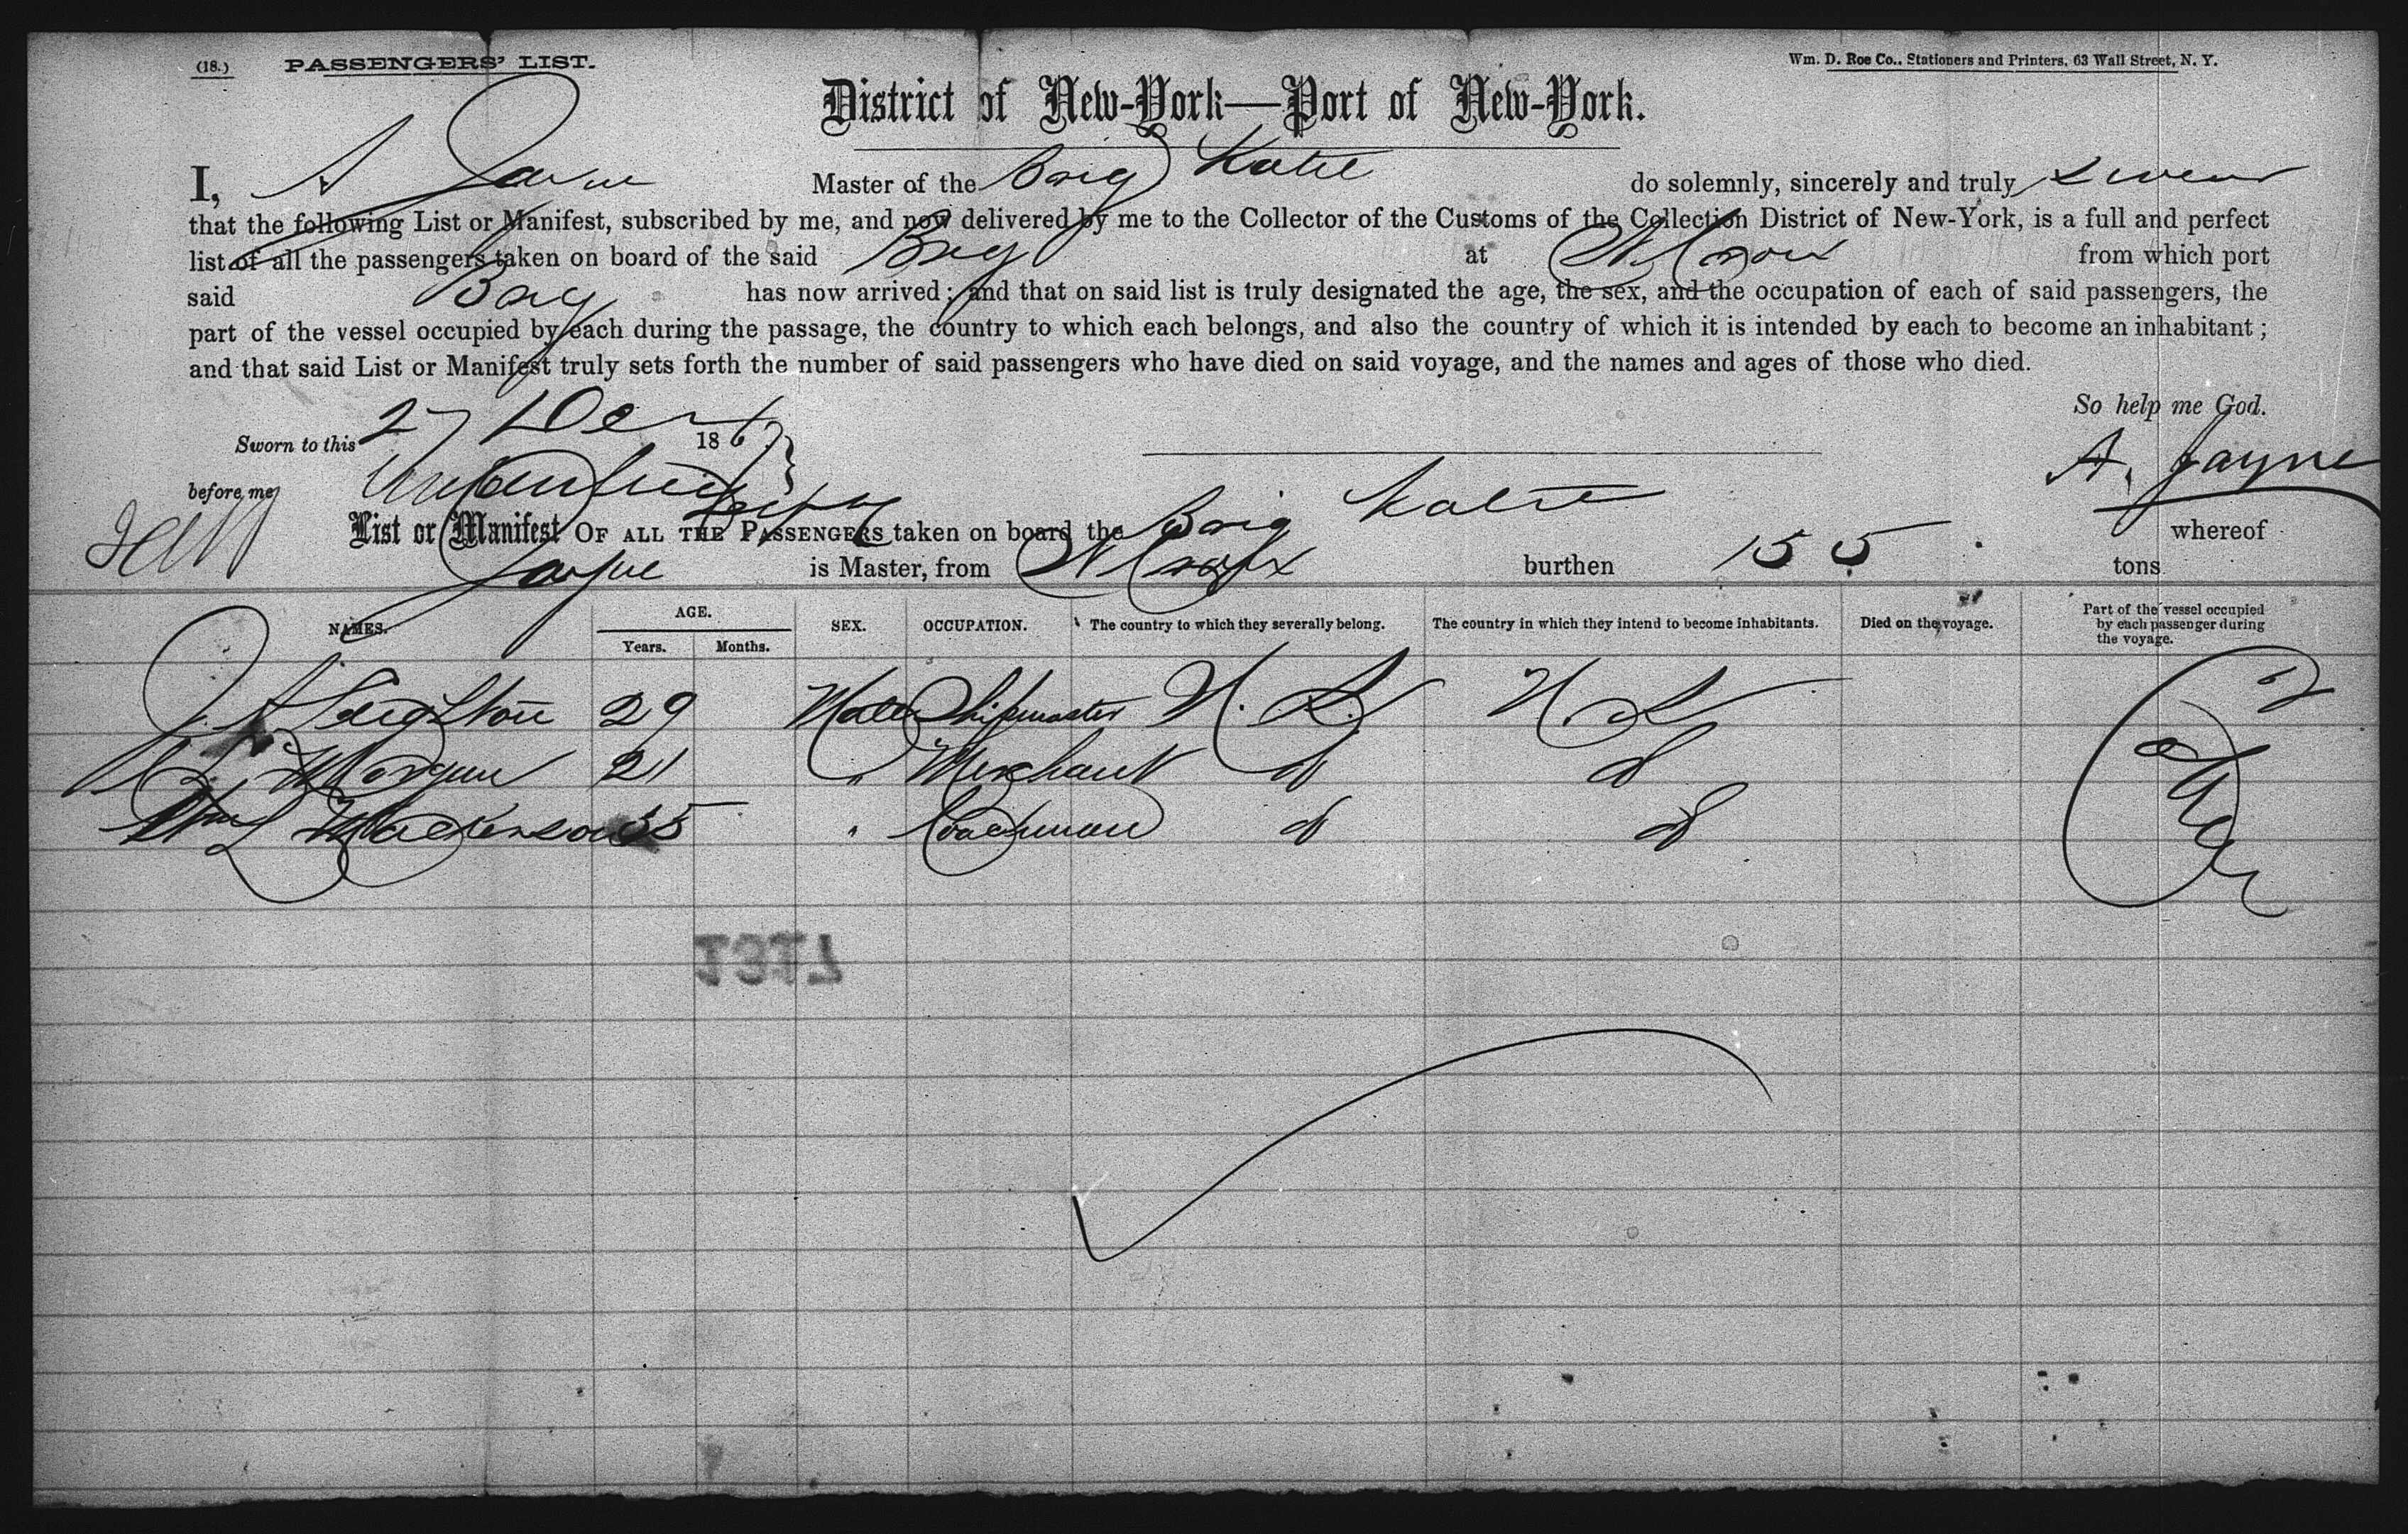 (18.) PASSENGERS' LIST.
Wm. D. Roe Co., Stationers and Printers, 63 Wall Street, N. Y.
District of New-York—Port of New-York.
I, A Jayne Master of the Brig Katie do solemnly, sincerely and truly swear
that the following List or Manifest, subscribed by me, and now delivered by me to the Collector of the Customs of the Collection District of New-York, is a full and perfect
list of all the passengers taken on board of the said Brig at St Croix from which port
said Brig has now arrived; and that on said list is truly designated the age, the sex, and the occupation of each of said passengers, the
part of the vessel occupied by each during the passage, the country to which each belongs, and also the country of which it is intended by each to become an inhabitant;
and that said List or Manifest truly sets forth the number of said passengers who have died on said voyage, and the names and ages of those who died.
So help me God.
Sworn to this 27 Dec 1867
A. Jayne
before me
List or Manifest OF ALL THE PASSENGERS taken on board the Brig Katie whereof
Jayne is Master, from St Croix burthen 155 tons
NAMES. AGE. Years. Months. SEX. OCCUPATION. The country to which they severally belong. The country in which they intend to become inhabitants. Died on the voyage. Part of the vessel occupied by each passenger during the voyage.
J. A Leighton 29 Male Shipmaster U. S. U. S
Morgan 21 " Merchant d d
Wm L Mackenson 35 " Coachman d d
Cabin
1317